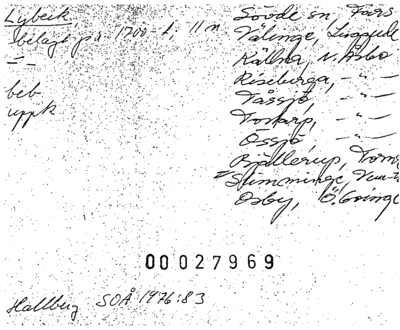 Lybeck,
belagt på 1700-t, 11 n
— " —
beb
uppk
Sövde sn, Färs
Välinge, Luggude
Källna, N. Åsbo
Riseberga, — " —
Tåssjö, — " —
Torrarp, — " —
Össjö, — " —
Bjällerup, Torna
Stimminge,
Osby, Ö. Göinge
00027969
Hallberg SOÅ 1976:83